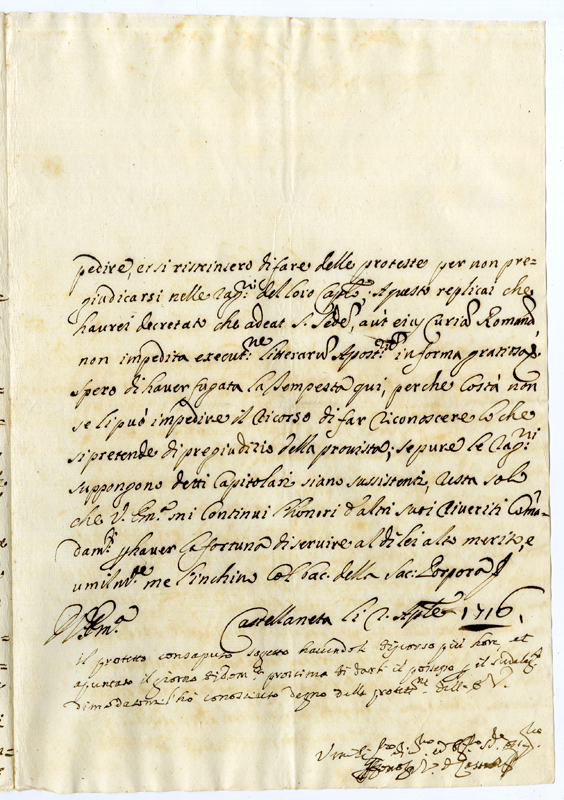 pedire, et si ristrinsero di fare delle proteste per non pre=
giudicarsi nelle rag.ni del loro Cap.lo, A questo replicai che
haurei decretato che adeat S. Sedē, aut eius Curiā Romanā,
non impedita execut.ne litterarū Apost.
spero di haver fugata la tempesta qui, perche costà non
se li può impedire il ricorso di far riconoscere lo che
si pretende di pregiudizio della provista, se pure le rag.ni
suppongono detti Capitolari siano sussistenti, resta solo
che V. Em.a mi continui l'honori d'altri suoi riveriti Com̄=
dam.ti p haver la fortuna di servire al di lei alto merito, e
umilm.te me l'inchino col bac. della Sac. Porpora
V. Em.a Castellaneta li 2. 1716.
il protetto consaputo sogetto havendoli discorso più hore, et
apuntato il giorno di dom.ca prossima di darli il possesso, e il
di modo tome l'hò conosciuto degno delle protet.ne dell' E V.